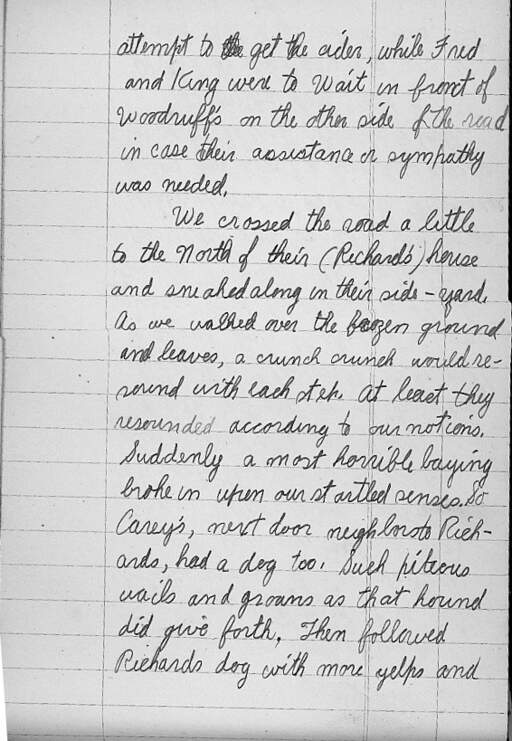 attempt to the get the cider, while Fred
and King were to wait in front of
Woodruff's on the other side of the road
in case their assistance or sympathy
was needed.
We crossed the road a little
to the North of their (Richards') house
and sneaked along in their side-yard.
As we walked over the frozen ground
and leaves, a crunch crunch would re-
sound with each step. At least they
resounded according to our notions.
Suddenly a most horrible baying
broke in upon our startled senses. So
Carey's, next door neighbors to Rich-
ards, had a dog too. Such piteous
wails and groans as that hound
did give forth. Then followed
Richards dog with more yelps and